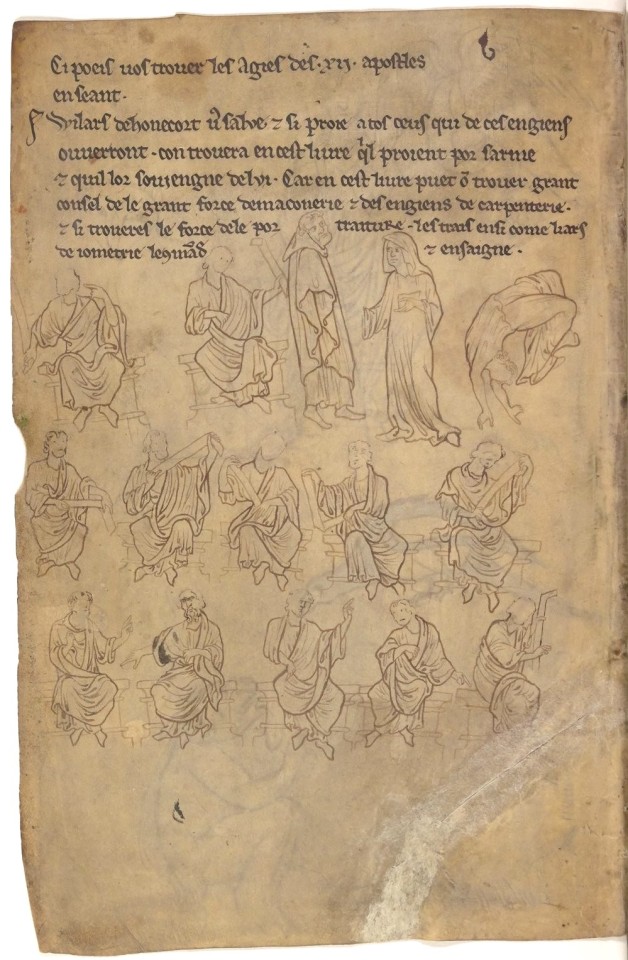 Ci poeis vos trover les agies des .xij. apostles
en seant.
Wilars dehonecort v9 salve ⁊ si proie a tos ceus qui de ces engiens
ouverront . con trovera en cest livre q̓l proient por sarme
⁊ quil lor soviengne delui . Car en cest livre puet ō trover grant
consel de le grant force demaconerie ⁊ des engiens de carpenterie .
⁊ si troveres le force dele por traiture . les trais ensi come li ars
de iometrie le ⁊ ensaigne .